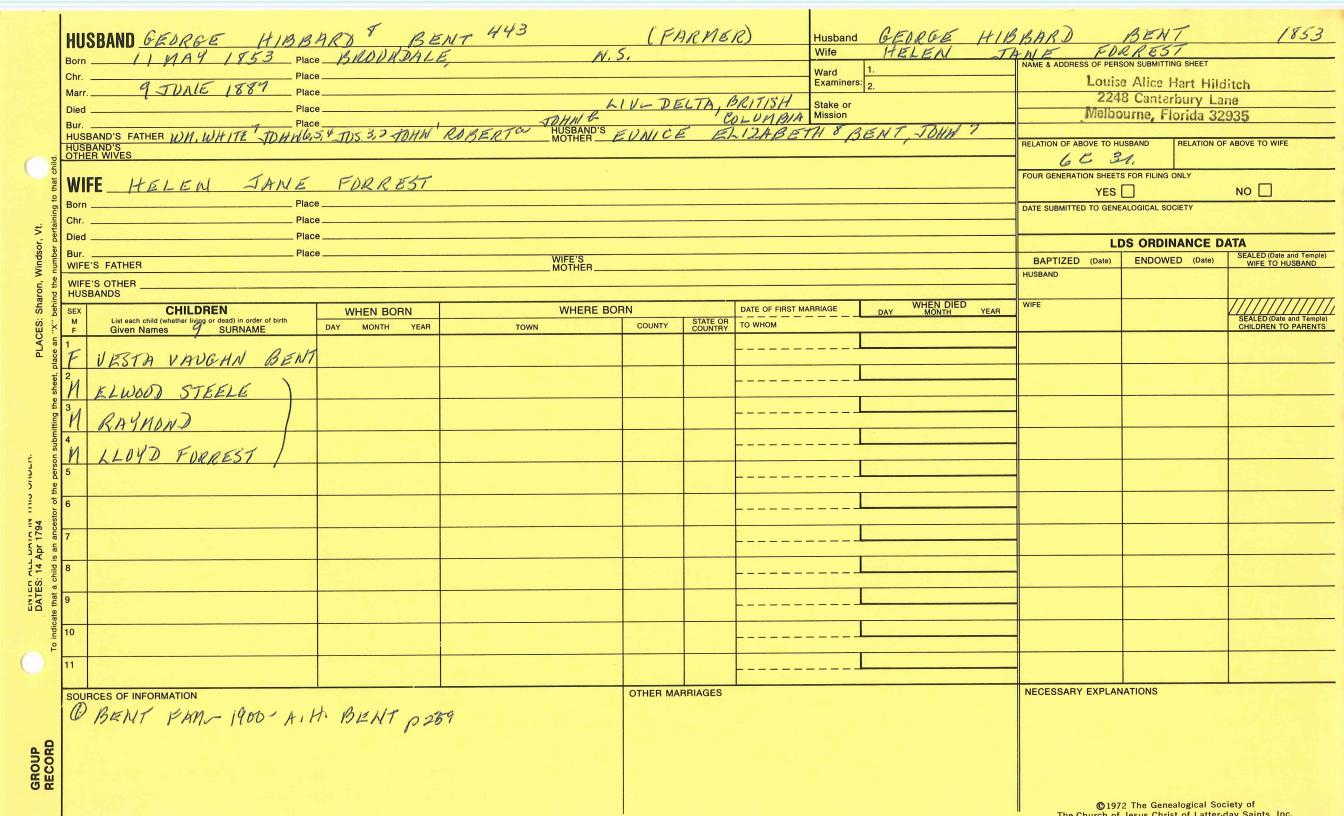 HUSBAND GEORGE HIBBARD 8 BENT 443 (FARMER)
Born 11 MAY 1853 Place N.S.
Chr. Place
Marr. 9 JUNE 1887 Place
Died Place LIV- DELTA, BRITISH
Bur. Place JOHN 6 COLUMBIA
HUSBAND'S FATHER WM. WHITE 7 JOHN 6,5,4 JOS 3,2 JOHN 1 ROBERT HUSBAND'S MOTHER EUNICE ELIZABETH 8 BENT, JOHN 7
HUSBAND'S OTHER WIVES
WIFE HELEN JANE FORREST
Born Place
Chr. Place
Died Place
Bur. Place
WIFE'S FATHER WIFE'S MOTHER
WIFE'S OTHER HUSBANDS
Husband GEORGE HIBBARD BENT 1853
Wife HELEN JANE FORREST
Ward Examiners: 1.
2.
Stake or Mission
NAME & ADDRESS OF PERSON SUBMITTING SHEET
Louise Alice Hart Hilditch
2248 Canterbury Lane
Melbourne, Florida 32935
RELATION OF ABOVE TO HUSBAND RELATION OF ABOVE TO WIFE
6C 3r.
FOUR GENERATION SHEETS FOR FILING ONLY
YES NO
DATE SUBMITTED TO GENEALOGICAL SOCIETY
LDS ORDINANCE DATA
BAPTIZED (Date) ENDOWED (Date) SEALED (Date and Temple) WIFE TO HUSBAND
HUSBAND
WIFE
SEALED (Date and Temple) CHILDREN TO PARENTS
SEX M F
CHILDREN
List each child (whether living or dead) in order of birth
Given Names 9 SURNAME
WHEN BORN
DAY MONTH YEAR
WHERE BORN
TOWN COUNTY STATE OR COUNTRY
DATE OF FIRST MARRIAGE
TO WHOM
WHEN DIED
DAY MONTH YEAR
1 F VESTA VAUGHAN BENT
2 M ELWOOD STEELE
3 M RAYMOND
4 M LLOYD FORREST
5
6
7
8
9
10
11
SOURCES OF INFORMATION
① BENT FAM- 1900- A.H. BENT p259
OTHER MARRIAGES
NECESSARY EXPLANATIONS
©1972 The Genealogical Society of
The Church of Jesus Christ of Latter-day Saints, Inc.
PLACES: Sharon, Windsor, Vt.
ENTER ALL DATA IN THIS ORDER:
DATES: 14 Apr 1794
To indicate that a child is an ancestor of the person submitting the sheet, place an "X" behind the number pertaining to that child.
GROUP
RECORD